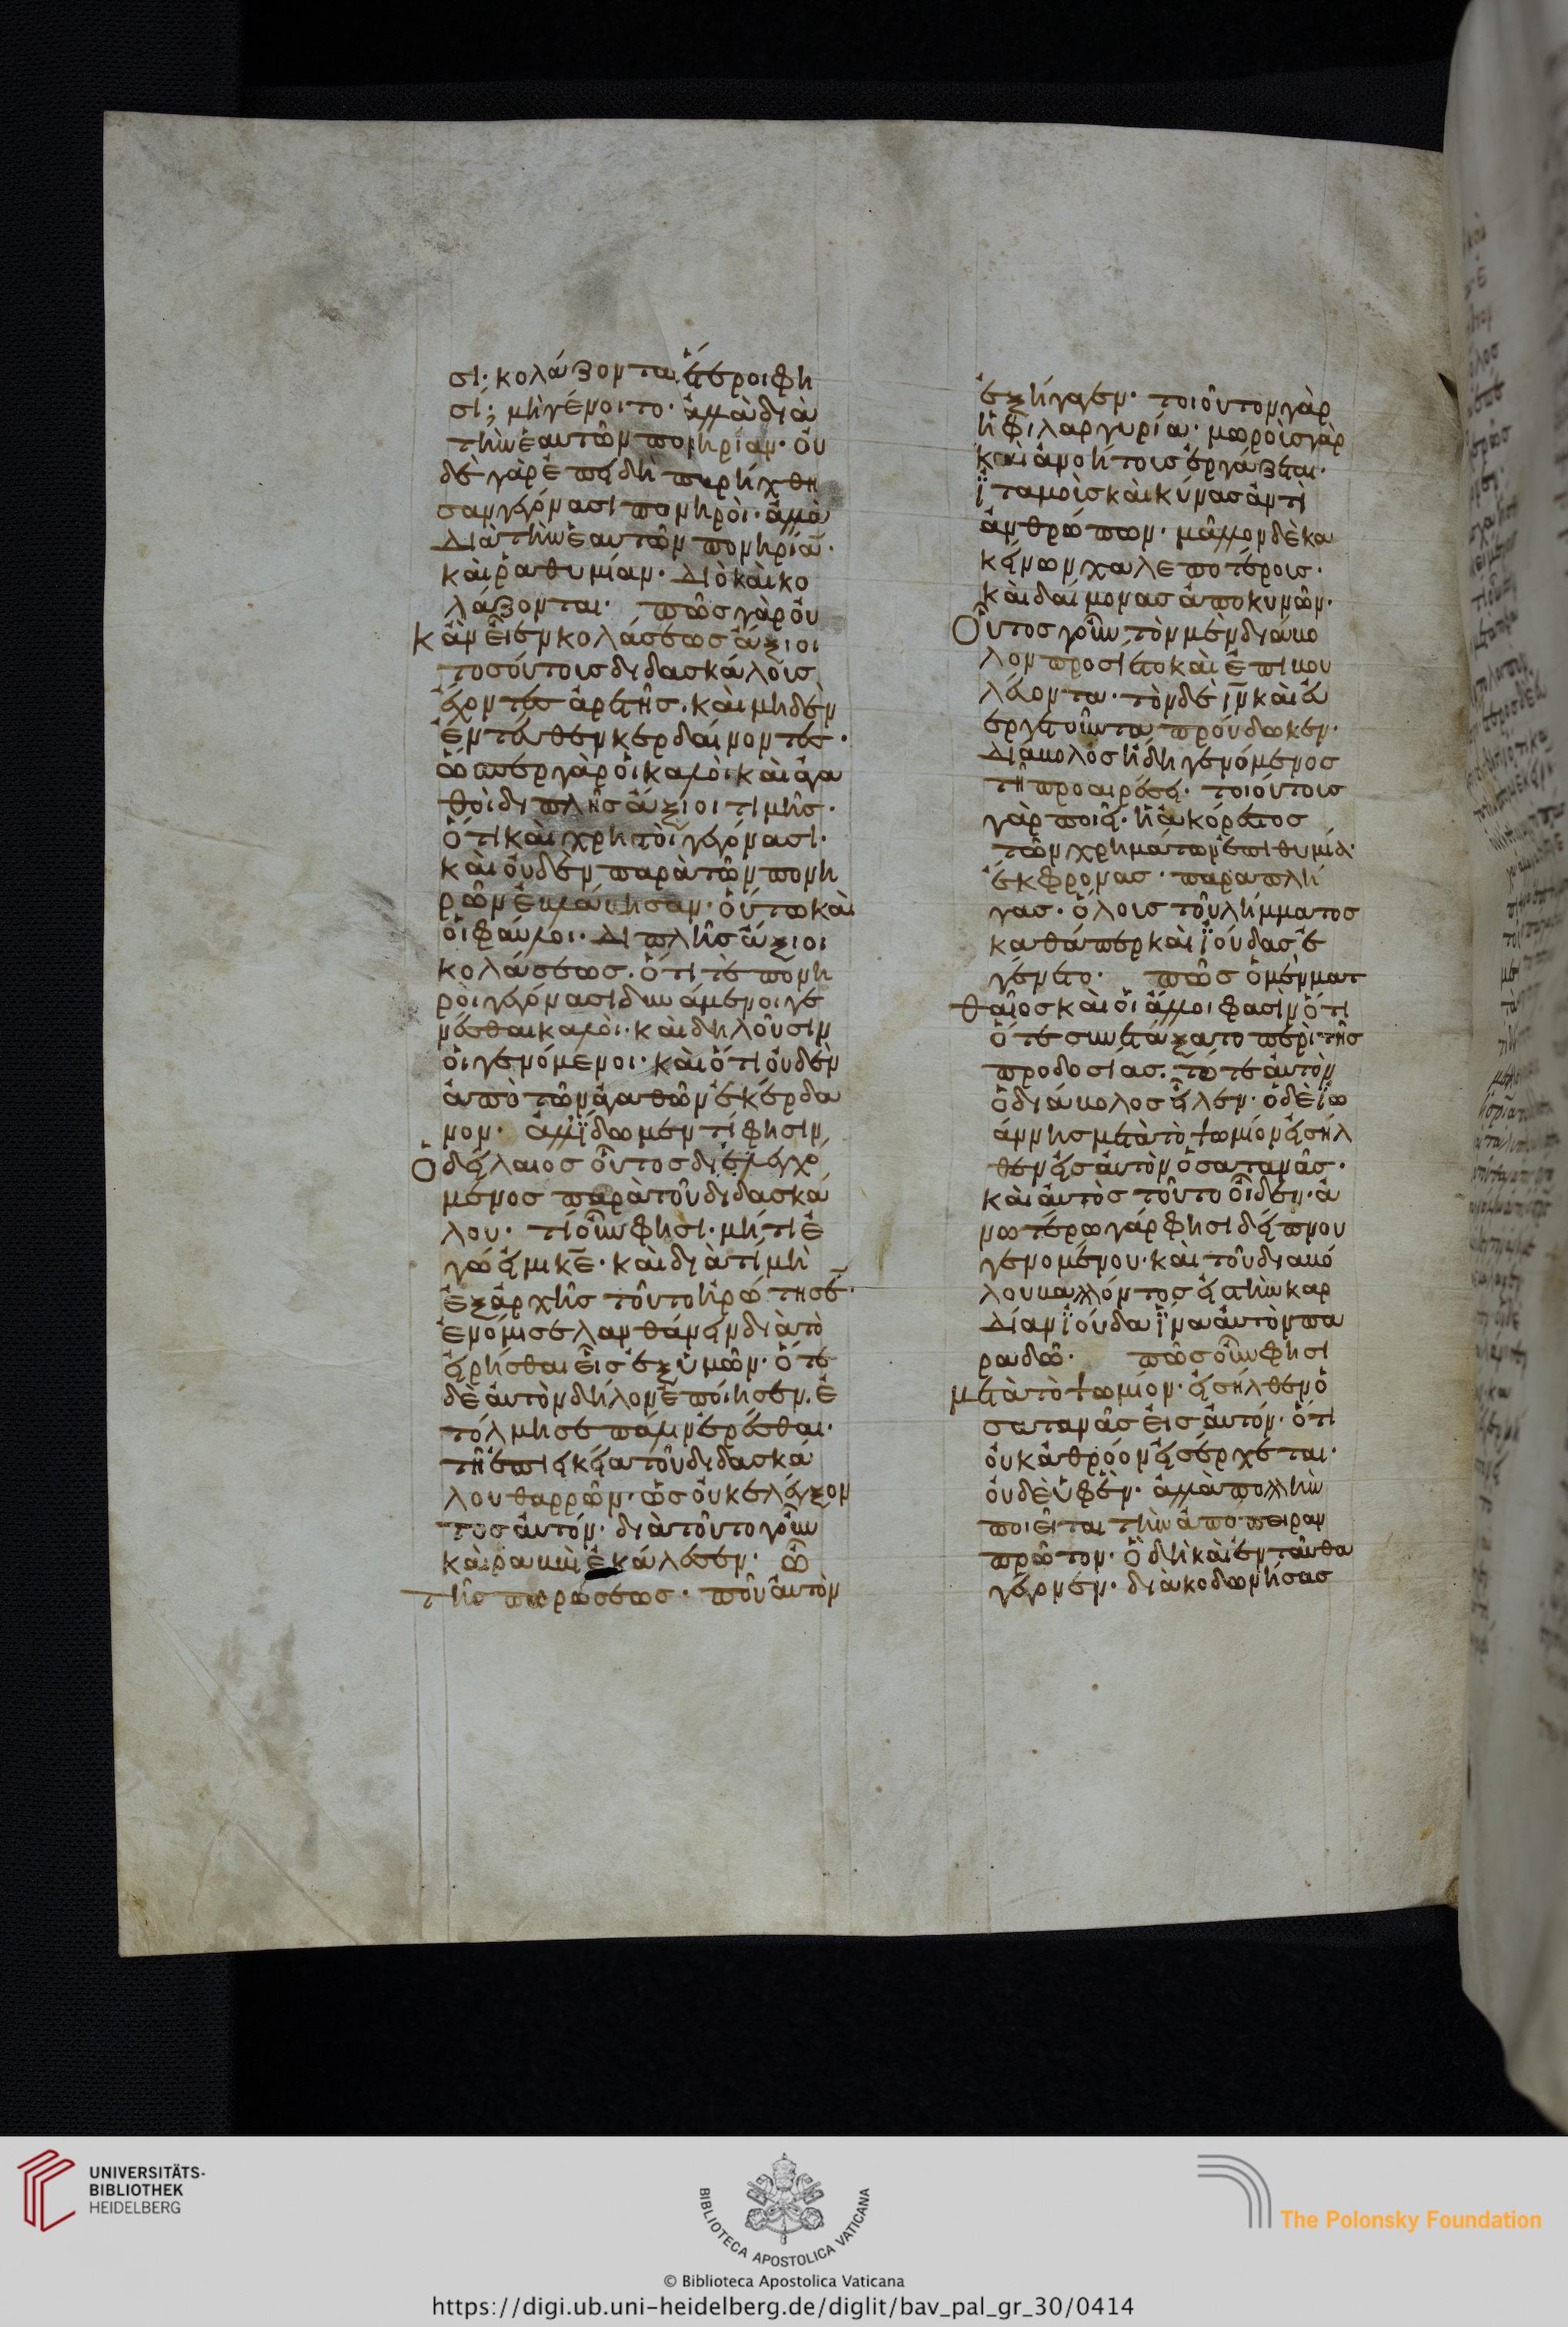 σι· κολάζονται ἕτεροι φη
σί; μὴ γένοιτο· ἀλλὰ διὰ
τὴν ἑαυτῶν πονηρίαν· οὐ
δὲ γὰρ ἐπειδὴ παρήχθη
σαν γεγόνασι πονηροὶ· ἀλλὰ
διὰ τὴν ἑαυτῶν πονηρίαν·
καὶ ῥαθυμίαν· διὸ καὶ κο
λάζονται· πῶς γὰρ οὐ
κἂν εἶεν κολάσεως ἄξιοι
τοσούτοις διδασκάλοις
ἔχοντες ἀρετῆς· καὶ μηδὲν
ἐντεῦθεν κερδαίνοντες·
ὥσπερ γὰρ οἱ καλοὶ καὶ ἀγα
θοὶ διπλῆς ἄξιοι τιμῆς·
ὅτι καὶ χρηστοὶ γεγόνασι·
καὶ οὐδὲν παρὰ τῶν πονη
ρῶν ἐβλάβησαν· οὕτω καὶ
οἱ φαῦλοι· διπλῆς ἄξιοι
κολάσεως· ὅτι τὲ πονη
ροὶ γεγόνασι δυνάμενοι γε
νέσθαι καλοὶ· καὶ δηλοῦσιν
οἱ γενόμενοι· καὶ ὅτι οὐδὲν
ἀπὸ τῶν ἀγαθῶν ἐκέρδα
νον· ἀλλ ἴδωμεν τί φησιν
Ὁ δείλαιος οὗτος διελεγχό
μενος παρὰ τοῦ διδασκά
λου· τί οὖν φησι· μή τι ἐ
γώ εἰμι κ̅ε̅· καὶ διὰ τί μὴ
ἐξἀρχῆς τοῦτο ἠρώτησε·
ἐνόμισε λανθάνειν διὰ τὸ
εἰρῆσθαι εἷς ἐξ ὑμῶν· ὅτε
δὲ αὐτὸν δῆλον ἐποίησεν· ἐ
τόλμησε πάλιν ἐρέσθαι·
τῆ ἐπιεικεία τοῦ διδασκά
λου θαρρῶν· ὡς οὐκ ελέγξον
τος αὐτόν· διὰ τοῦτο γοῦν
καὶ ραββὶ ἐκάλεσεν· ὢ
τῆς πωρώσεως· ποῦ αὐτὸν
ἐξήγαγεν· τοιοῦτον γὰρ
ἡ φιλαργυρία· μωροὺς γὰρ
καὶ ἀνοήτους ἐργάζεται·
ἰταμοὺς καὶ κύνας ἀντὶ
ἀνθρώπων· μᾶλλον δὲ κα
κείνων χαλεποτέρους·
καὶ δαίμονας ἀπὸ κυνῶν·
Οὗτος γοῦν τὸν μὲν διάβο
λον προσίετο καὶ ἐπιβου
λεύοντα· τὸν δὲ ι̅ν̅ καὶ εὐ
εργετοῦντα προύδωκεν·
διάβολος ἤδη γενόμενος
τῆ προαιρέσει· τοιούτους
γὰρ ποιεῖ· ἡ ἀκόρεστος
τῶν χρημάτων ἐπιθυμία·
ἔκφρονας· παραπλῆ
γας· ὅλους τοῦ λήμματος
καθάπερ καὶ ἰούδας ἐ
γένετο· πῶς ὁ μὲν ματ
θαῖος καὶ οἱ ἄλλοι φασὶν ὅτι
ὅτε συνετάξατο περὶ τῆς
προδοσίας· τότε αὐτὸν
ὁ διάβολος εἷλεν· ὁ δὲ ἰω
άννης μετὰ τὸ ψωμίον εἰσῆλ
θεν εἰς αὐτὸν ὁ σατανᾶς·
καὶ αὐτὸς τοῦτο οἶδεν· ἀ
νωτέρω γάρ φησι δείπνου
γενομένου· καὶ τοῦ διαβό
λου βαλλόντος εἰς τὴν καρ
δίαν ἰούδα ἵνα αὐτὸν πα
ραδῶ· πῶς οὖν φησι
μετὰ τὸ ψωμίον· εἰσῆλθεν ὁ
σατανᾶς εἰς αὐτόν· ὅτι
οὐκ ἀθρόον εἰσέρχεται·
οὐδὲ ὑφέν· ἀλλὰ πολλὴν
ποιεῖται τὴν ἀπόπειραν
πρῶτον· ὃ δὴ καὶ ἐνταῦθα
γέγονεν· διακοδωνήσας
UNIVERSITÄTS-
BIBLIOTHEK
HEIDELBERG
BIBLIOTECA APOSTOLICA VATICANA
The Polonsky Foundation
© Biblioteca Apostolica Vaticana
https://digi.ub.uni-heidelberg.de/diglit/bav_pal_gr_30/0414